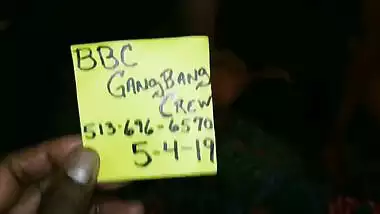 BBC
GANGBANG
CREW
513-696-6570
5-4-19